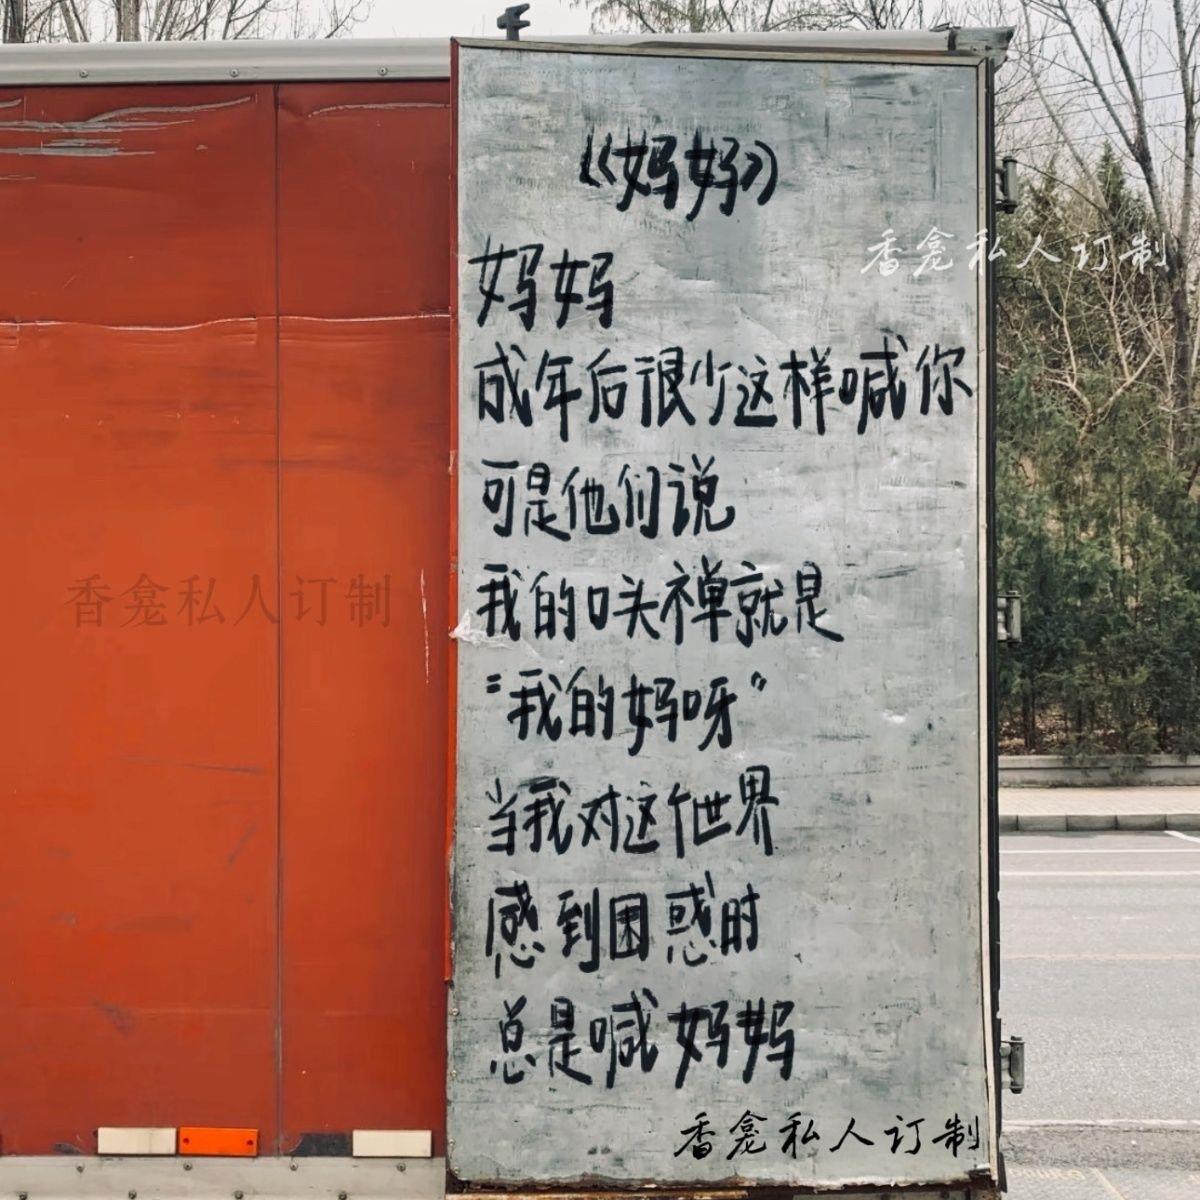 《妈妈》
妈妈
成年后很少这样喊你
可是他们说
我的口头禅就是
“我的妈呀”
当我对这个世界
感到困惑时
总是喊妈妈
香龛私人订制
香龛私人订制
香龛私人订制